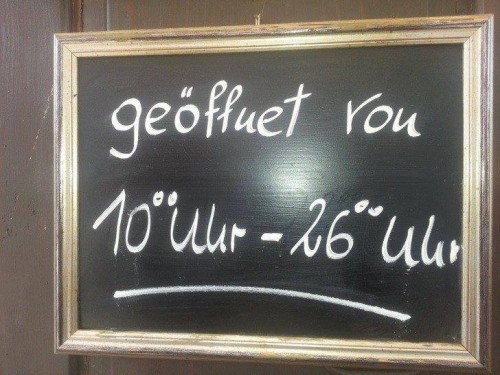 geöffnet von
10⁰⁰ Uhr - 26⁰⁰ Uhr